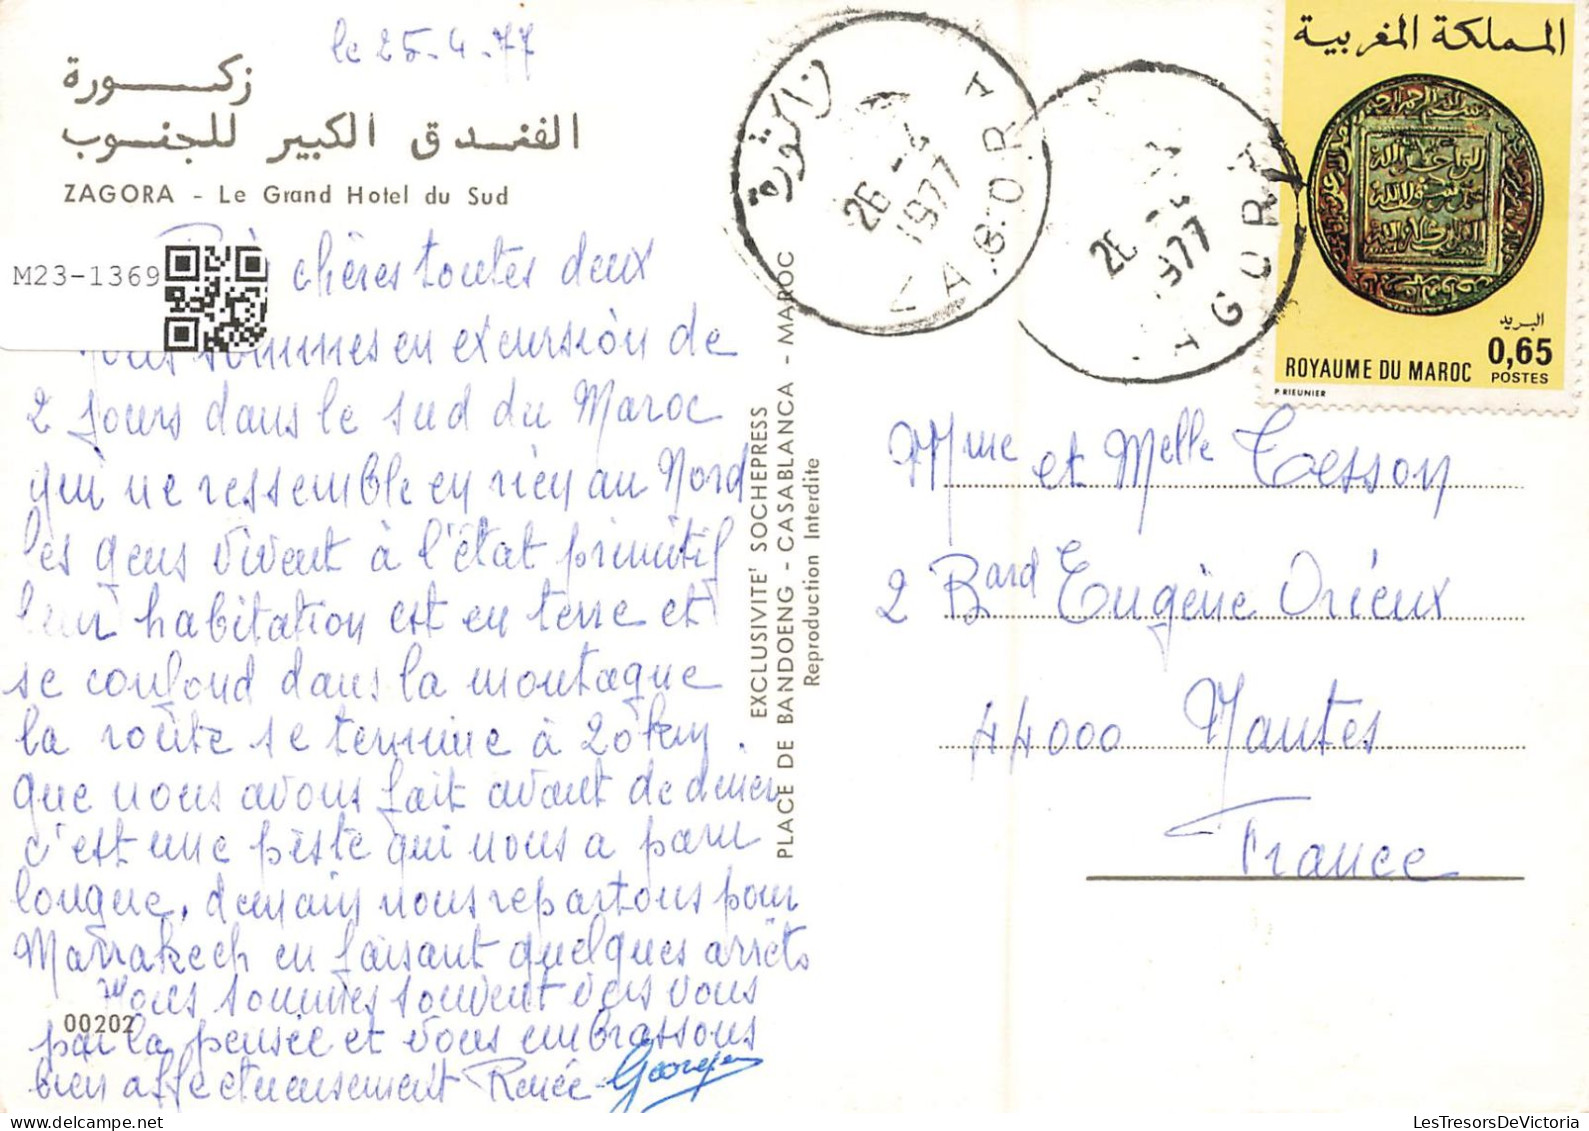 le 25-4-77
زكـورة
الفنـدق الكبير للجنـوب
ZAGORA - Le Grand Hotel du Sud
M23-1369
chères toutes deux
Nous sommes en excursion de
2 jours dans le sud du Maroc
qui ne ressemble en rien au Nord
les gens vivent à l'état primitif
leur habitation est en terre et
se confond dans la montagne
la route se termine à 20 km.
que nous avons fait avant de diner
c'est une piste qui nous a paru
longue, demain nous repartons pour
Marrakech en faisant quelques arrêts
Nous sommes souvent vers vous
par la pensée et vous embrassons
bien affectueusement Renée - Georges
00202
EXCLUSIVITE' SOCHEPRESS
PLACE DE BANDOENG - CASABLANCA - MAROC
Reproduction Interdite
26 - 4
1977
ZAGORA
26 - 4
1977
AGORA
المملكة المغربية
البريد
0,65
ROYAUME DU MAROC
POSTES
P. RIEUNIER
Mme et Melle Tesson
2 Bard Eugène Orieux
44000 Nantes
France
LesTresorsDeVictoria.com